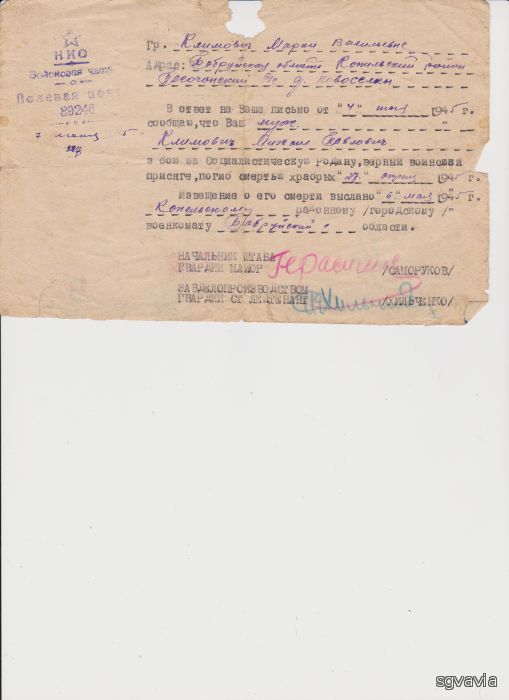 НКО
Войсковая часть
Полевая поч
89246
7 июня 5.
Гр. Климович Марии Васильевне
Адрес: Бобруйская область Копыльский район
д. Новоселки
В ответ на Ваше письмо от "4" мая 1945 г.
сообщаю, что Ваш муж
Климович Михаил Павлович
в бою за Социалистическую Родину, верный воинской
присяге, погиб смертью храбрых "27" апреля 1945 г.
Извещение о его смерти выслано "6" мая 1945 г.
Копыльскому районному /городскому /"
военкомату Бобруйской области.
НАЧАЛЬНИК ШТАБА
ГВАРДИИ МАЙОР Герасимов /САМОРУКОВ/
ЗАВДЕЛОПРОИЗВОДСТВОМ
ГВАРДИИ СТ ЛЕЙТЕНАНТ /ХИЛЬЧЕНКО/
sgvavia